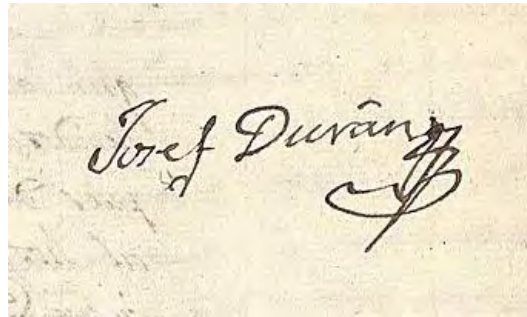 Josef Durân